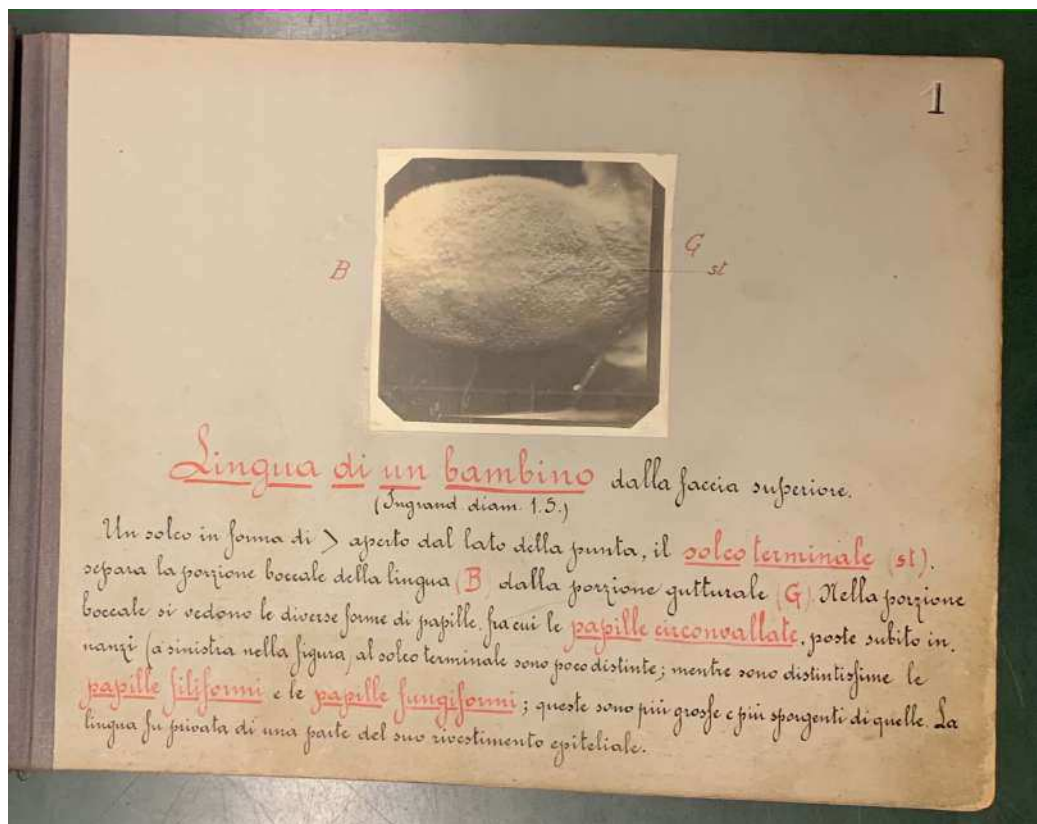 1
B
G
st
Lingua di un bambino dalla faccia superiore.
(Ingrand. diam. 1.5.)
Un solco in forma di > aperto dal lato della punta, il solco terminale (st),
separa la porzione boccale della lingua (B) dalla porzione gutturale (G). Nella porzione
boccale si vedono le diverse forme di papille, fra cui le papille circonvallate, poste subito in,
nanzi (a sinistra nella figura) al solco terminale sono poco distinte; mentre sono distintissime le
papille filiformi e le papille fungiformi; queste sono più grosse e più sporgenti di quelle. La
lingua fu privata di una parte del suo rivestimento epiteliale.